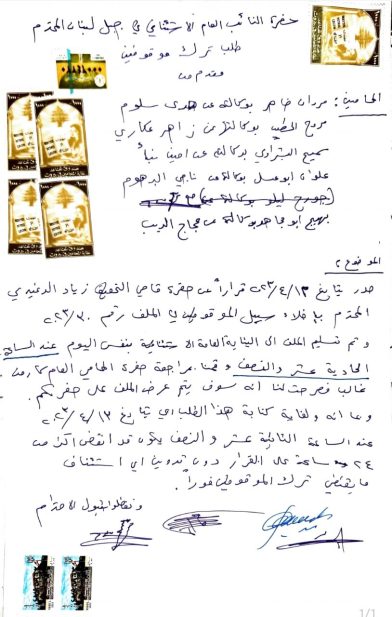 حضرة النائب العام الاستئنافي في جبل لبنان المحترم
طلب ترك موقوفين
مقدم من
المحامين: مروان ضاهر بوكالته عن هدى سلوم
مروج الخطيب بوكالتها عن زاهر عكاري
سميح البشراوي بوكالته عن
علوان ابو عسل بوكالته عن ناجي البرهوم
جورج بوكالته عن
بهيج ابو مجاهد بوكالته عن حجاج الديب
الموضوع:
صدر بتاريخ ٢٣/٤/١٢ قراراً عن حضرة قاضي التحقيق زياد الدغيدي
المحترم بإخلاء سبيل الموقوفين في الملف رقم ٢٣/٣٠
وتم تسليم الملف الى النيابة العامة الاستئنافية بنفس اليوم عند الساعة
الحادية عشر والنصف وقمنا بمراجعة حضرة المحامي العام
غالب فصرحت لنا انه سوف يتم عرض الملف على حضرتكم.
وبما انه ولغاية كتابة هذا الطلب اي تاريخ ٢٣/٤/١٣
عند الساعة الثانية عشر والنصف يكون قد انقضى اكثر من
٢٤ ساعة على القرار دون تدوين اي استئناف
ما يقتضي ترك الموقوفين فوراً.
وتفضلوا بقبول الاحترام
1/1